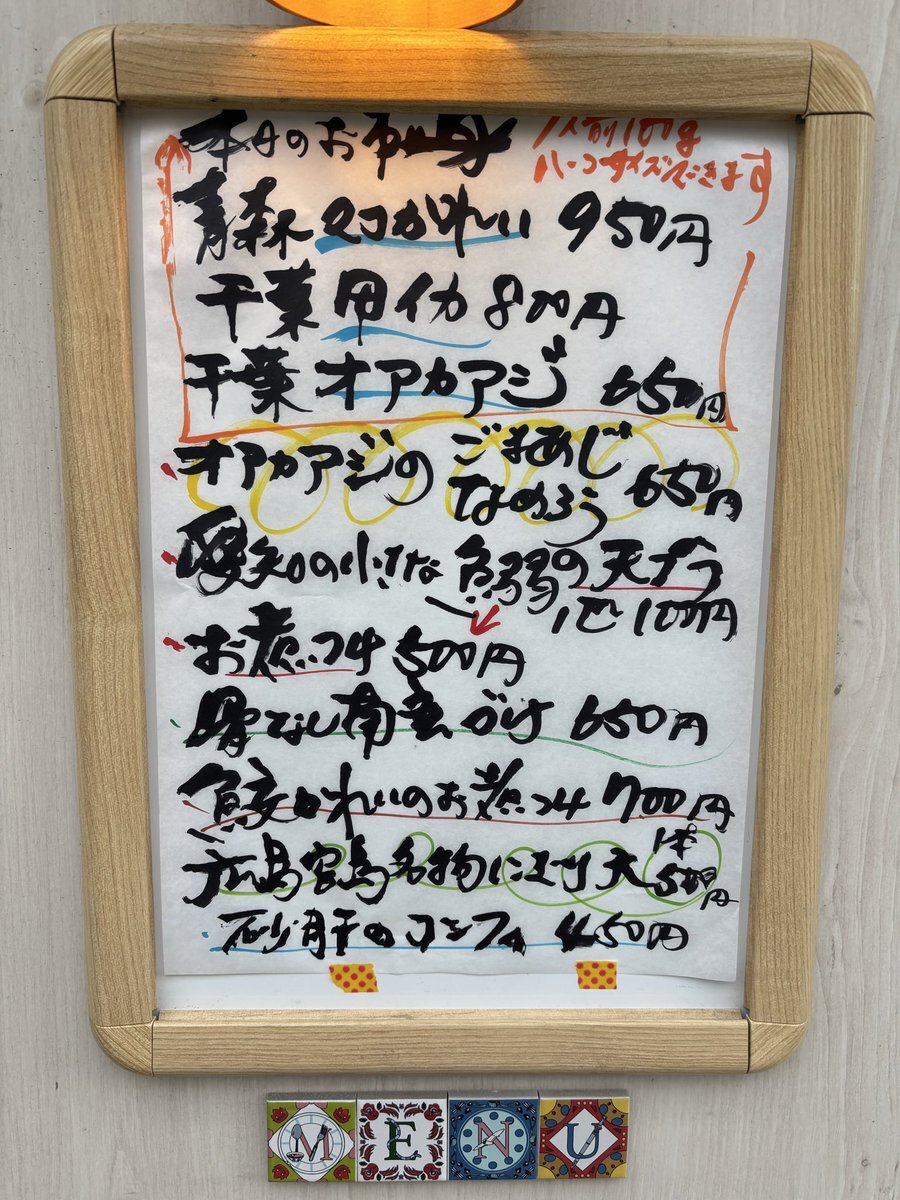 本日のお刺身
1人前100g
ハーフサイズできます
青森 マコがれい 950円
千葉 甲イカ 800円
千葉 オアカアジ 650円
オアカアジの ごまあじ なめろう 650円
愛知の小さな 魚弱の天プラ
1匹 100円
お煮つけ 500円
骨なし南蛮づけ 650円
鮫がれいのお煮つけ 700円
広島宮島名物にぎり天 1本 500円
砂肝のコンフィ 450円
MENU